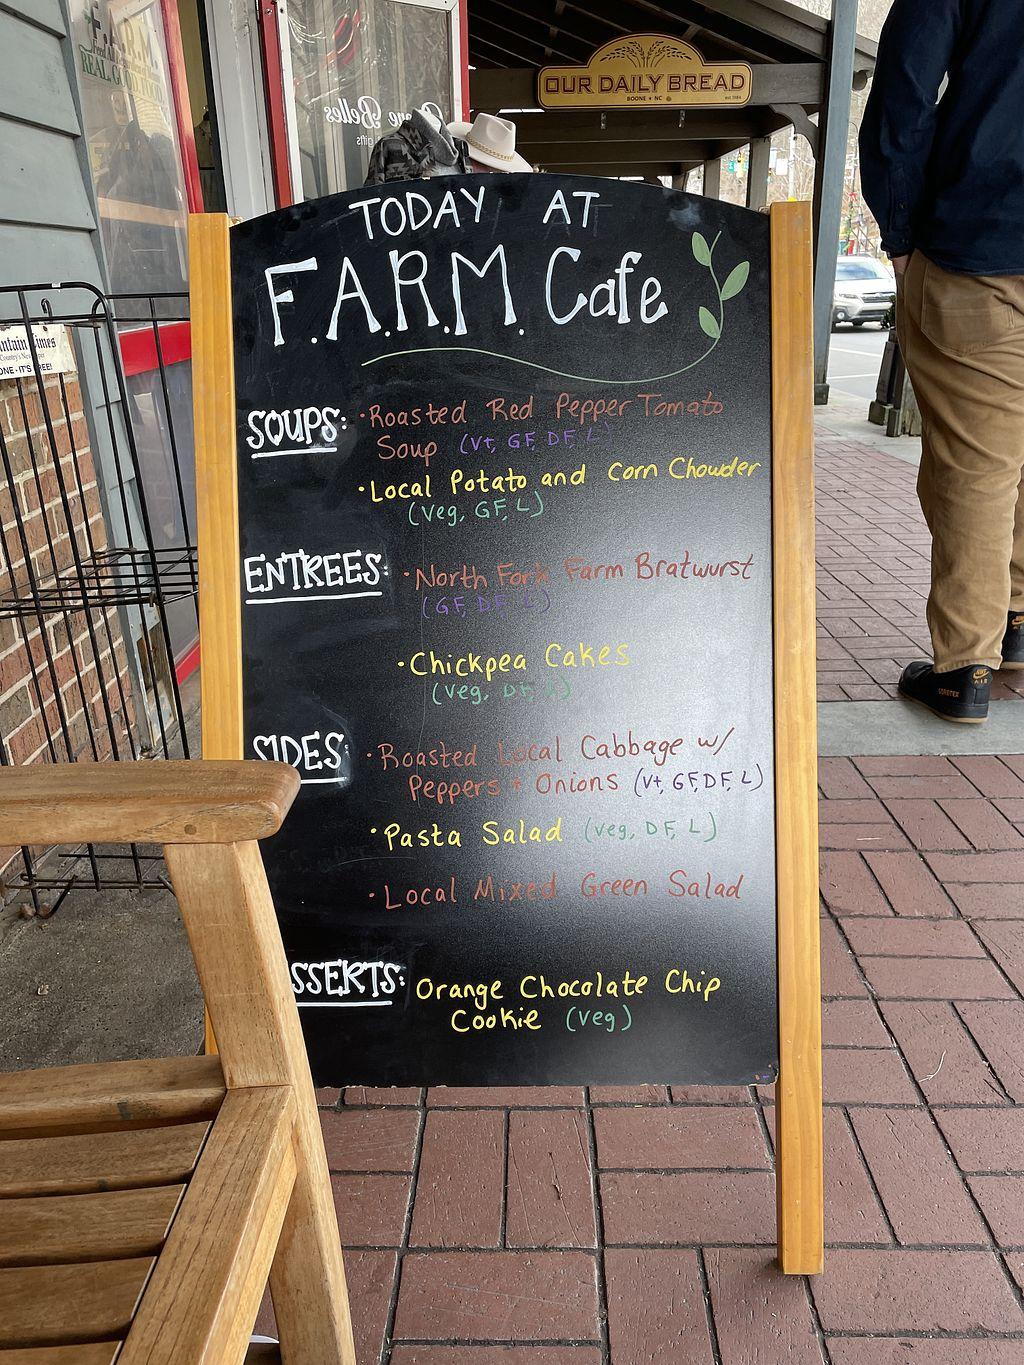 F.A.R.M.
REAL GOOD
OUR DAILY BREAD
BOONE • NC
est 1984
Belles
gifts
TODAY AT
F.A.R.M. Cafe
SOUPS: • Roasted Red Pepper Tomato
Soup (Vt, GF, DF, L)
• Local Potato and Corn Chowder
(Veg, GF, L)
ENTREES: • North Fork Farm Bratwurst
(GF, DF, L)
• Chickpea Cakes
(Veg, DF, L)
SIDES: • Roasted Local Cabbage w/
Peppers + Onions (Vt, GF, DF, L)
• Pasta Salad (Veg, DF, L)
• Local Mixed Green Salad
SSERTS: Orange Chocolate Chip
Cookie (Veg)
ntain Times
Country's New
ONE - IT'S FREE!
NIKE
AIR
GORE-TEX